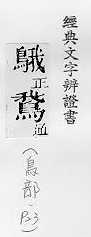 經典文字辨證書
䳘正鵞通
(鳥部·B3)